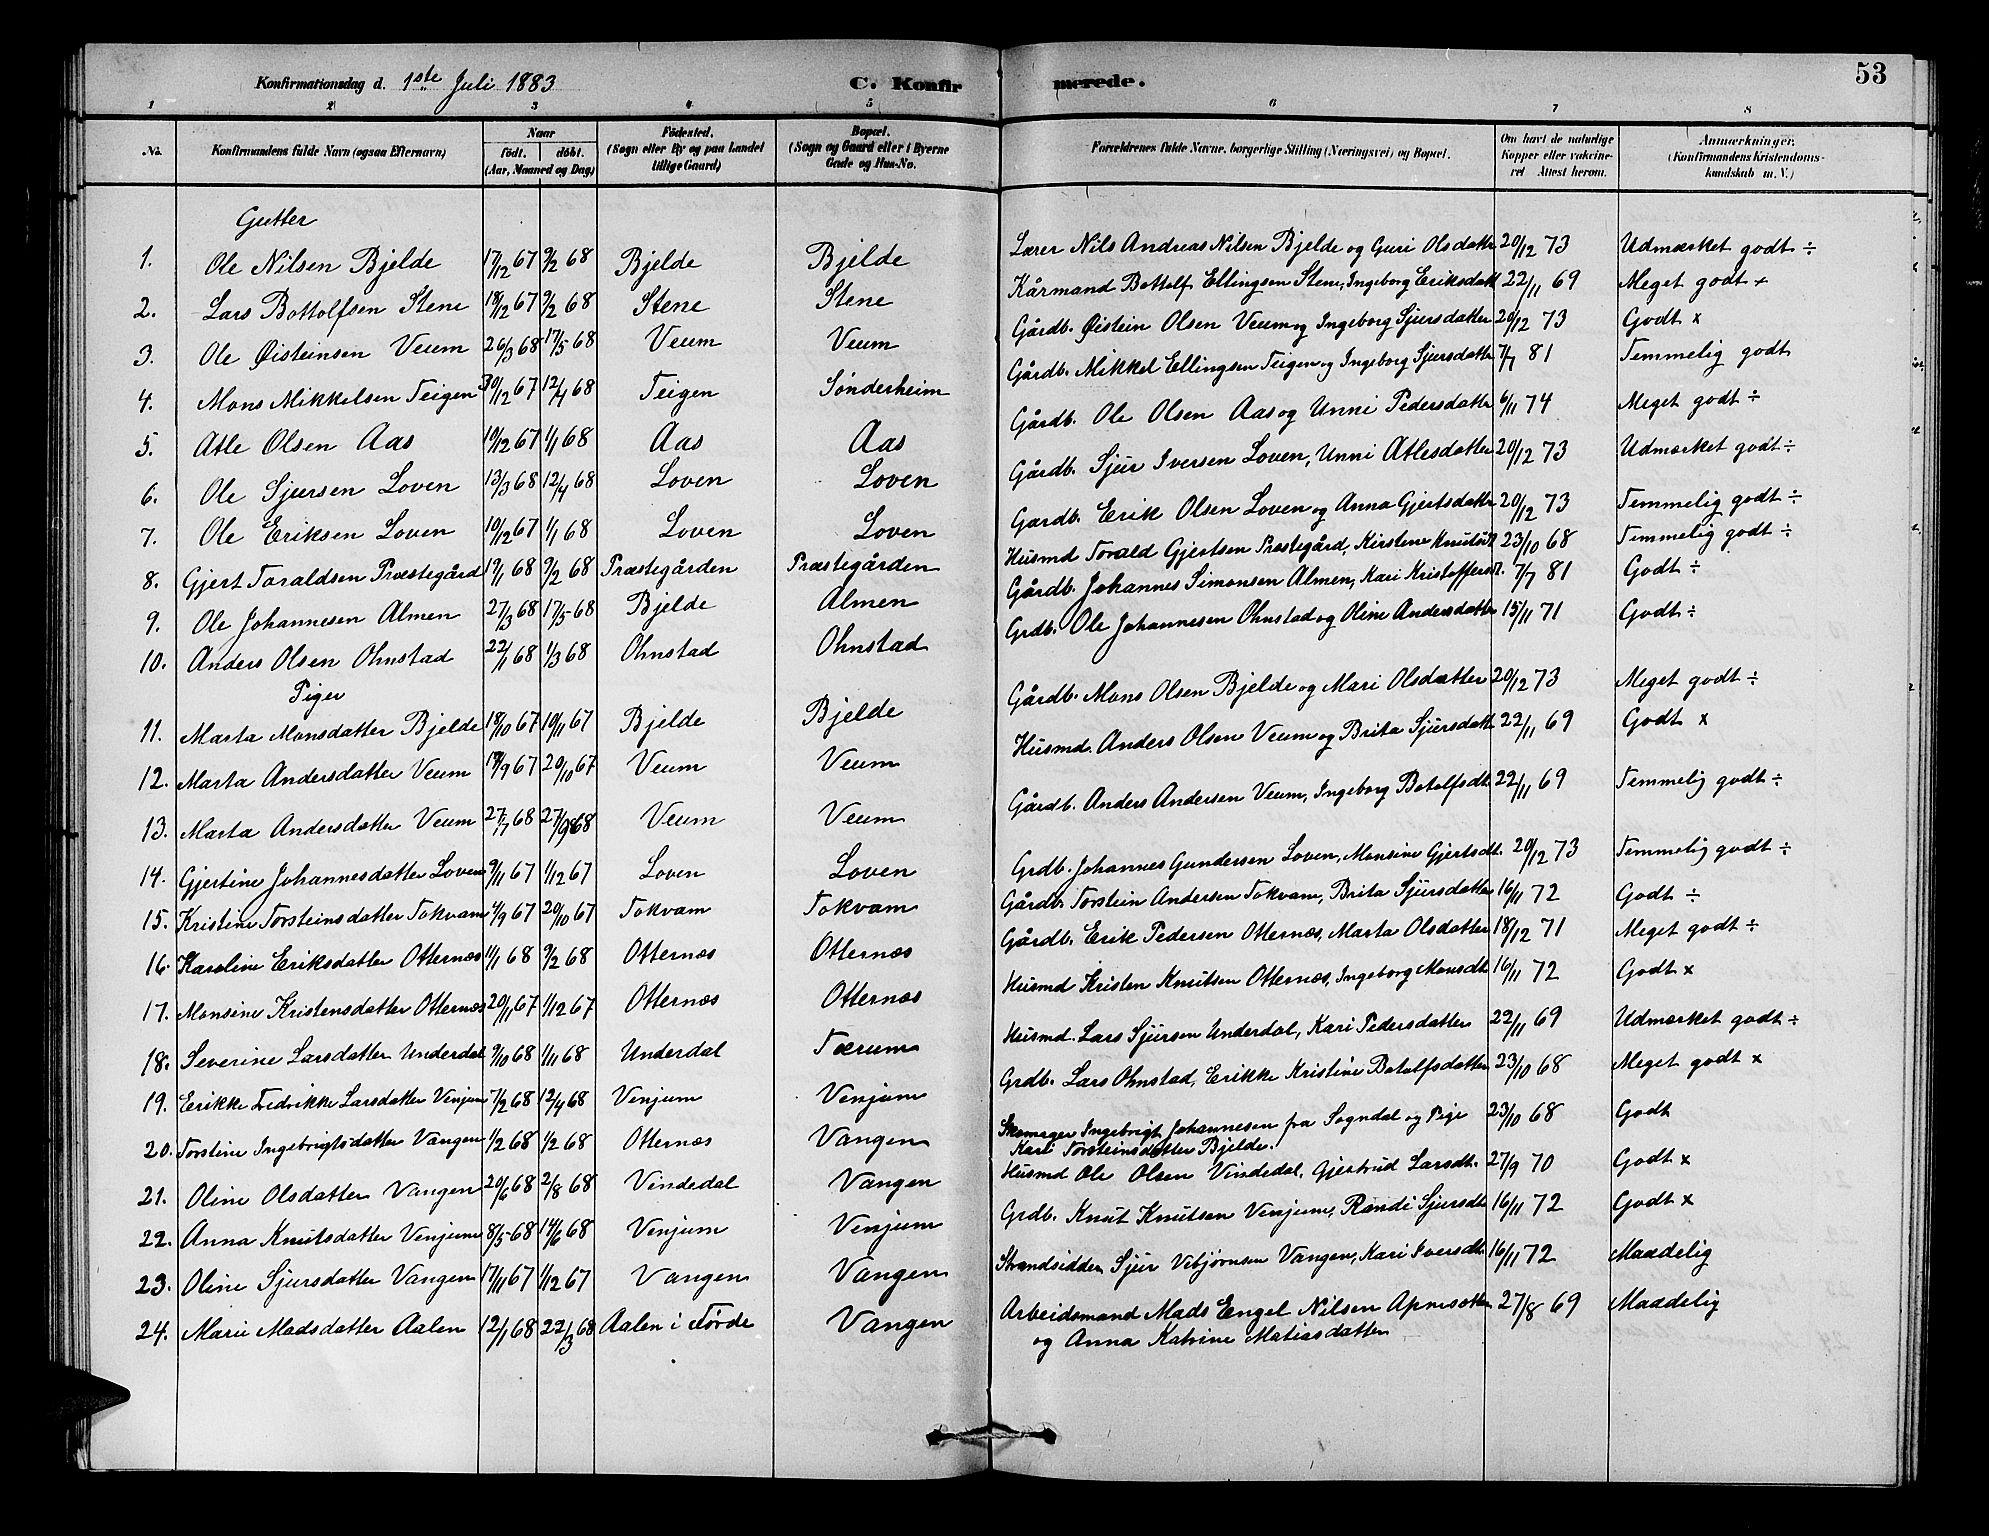 53
Konfirmationsdag d. 1ste Juli 1883 C. Konfirmerede.
1 2 3 4 5 6 7 8
No. Konfirmandens fulde Navn (ogsaa Efternavn) Naar født. døbt. (Aar, Maaned og Dag) Fødested. (Sogn eller By og paa Landet tillige Gaard) Bopæl. (Sogn og Gaard eller i Byerne Gade og Hus-No. Forældrenes fulde Navne, borgerlige Stilling (Næringsvei) og Bopæl. Om havt de naturlige Kopper eller vakcineret Attest herom. Anmærkninger. (Konfirmandens Kristendomskundskab m. V.)
Gutter
1. Ole Nilsen Bjelde 17/12 67 9/2 68 Bjelde Bjelde Lærer Nils Andreas Nilsen Bjelde og Guri Olsdattr 20/12 73 Udmærket godt ÷
2. Lars Bottolfsen Stene 18/12 67 9/2 68 Stene Stene Kårmand Bottolf Ellingsen Stene, Ingeborg Eriksdatt 22/11 69 Meget godt ×
3. Ole Øisteinsen Veum 26/3 68 17/5 68 Veum Veum Gårdb. Øistein Olsen Veum og Ingeborg Sjursdatter 20/12 73 Godt ×
4. Mons Mikkelsen Teigen 30/12 67 12/4 68 Teigen Sønderheim Gårdb. Mikkel Ellingsen Teigen og Ingeborg Sjursdatter 7/7 81 Temmelig godt
5. Atle Olsen Aas 10/12 67 1/1 68 Aas Aas Gårdb. Ole Olsen Aas og Unni Pedersdattr 6/11 74 Meget godt ÷
6. Ole Sjursen Loven 13/3 68 12/4 68 Loven Loven Gårdb. Sjur Iversen Loven, Unni Atlesdatter 20/12 73 Udmærket godt ÷
7. Ole Eriksen Loven 10/12 67 1/1 68 Loven Loven Gårdb. Erik Olsen Loven og Anna Gjertsdattr 20/12 73 Temmelig godt ÷
8. Gjert Toraldsen Præstegård 19/1 68 9/2 68 Præstegården Præstegården Husmd Torald Gjertsen Præstegård, Kirstene 23/10 68 Temmelig godt ÷
9. Ole Johannesen Almen 27/3 68 17/5 68 Bjelde Almen Gårdb. Johannes Simonsen Almen, Kari 7/7 81 Godt ÷
10. Anders Olsen Ohnstad 22/1 68 1/3 68 Ohnstad Ohnstad Grdb. Ole Johannesen Ohnstad og Oline Andersdatter 15/11 71 Godt ÷
Piger
11. Marta Monsdatter Bjelde 18/10 67 10/11 67 Bjelde Bjelde Gårdb. Mons Olsen Bjelde og Mari Olsdatter 20/12 73 Meget godt ÷
12. Marta Andersdatter Veum 67 20/10 67 Veum Veum Husmd. Anders Olsen Veum og Brita Sjursdatt 22/11 69 Godt ×
13. Marta Andersdatter Veum 27/7 68 27/9 68 Veum Veum Gårdb. Anders Andersen Veum, Ingeborg Botolfsdt. 22/11 69 Temmelig godt ÷
14. Gjertine Johannesdatter Loven 9/11 67 1/12 67 Loven Loven Grdb. Johannes Gundersen Loven, Monsine Gjertsdt. 20/12 73 Temmelig godt ÷
15. Kristine Torsteinsdatter Tokvam 67 20/10 67 Tokvam Tokvam Gårdb. Torstein Andersen Tokvam, Brita Sjursdatter 16/11 72 Godt ÷
16. Karoline Eriksdatter Otternæs 1/1 68 9/2 68 Otternæs Otternæs Gårdb. Erik Pedersen Otternæs, Marta Olsdatter 18/12 71 Meget godt ÷
17. Monsine Kristensdatter Otternæs 20/11 67 1/12 67 Otternæs Otternæs Husmd Kristen Knutsen Otternæs, Ingeborg Monsdt 16/11 72 Godt ×
18. Severine Larsdatter Underdal 9/10 68 1/11 68 Underdal Tærum Husmd. Lars Sjursen Underdal, Kari Pedersdatter 22/11 69 Udmærket godt ÷
19. Erikke Fredrikke Larsdatter Venjum 7/2 68 12/4 68 Venjum Venjum Grdb. Lars Ohnstad, Erikke Kristine Botolfsdatter 23/10 68 Meget godt ×
20. Torstine Ingebrigtsdatter Vangen 1/2 68 1/2 68 Otternæs Vangen Skomager Ingebrigt Johannesen fra Sogndal og Pige 23/10 68 Godt
Kari Torsteinsdatter Bjelde.
21. Oline Olsdatter Vangen 20/6 68 2/8 68 Vindedal Vangen Husmd Ole Olsen Vindedal, Gjertrud Larsdt. 27/9 70 Godt ×
22. Anna Knutsdatter Venjum 8/5 68 14/6 68 Venjum Venjum Grdb. Knut Knutsen Venjum, Randi Sjursdt 16/11 72 Godt ×
23. Oline Sjursdatter Vangen 17/11 67 1/12 67 Vangen Vangen Strandsidder Sjur Vibjørnsen Vangen, Kari Iversdt. 16/11 72 Maadelig
24. Marie Madsdatter Aalen 12/1 68 22/3 68 Aalen i Førde Vangen Arbeidsmand Mads Engel Nilsen 27/8 69 Maadelig
og Anna Katrine Matiasdatter